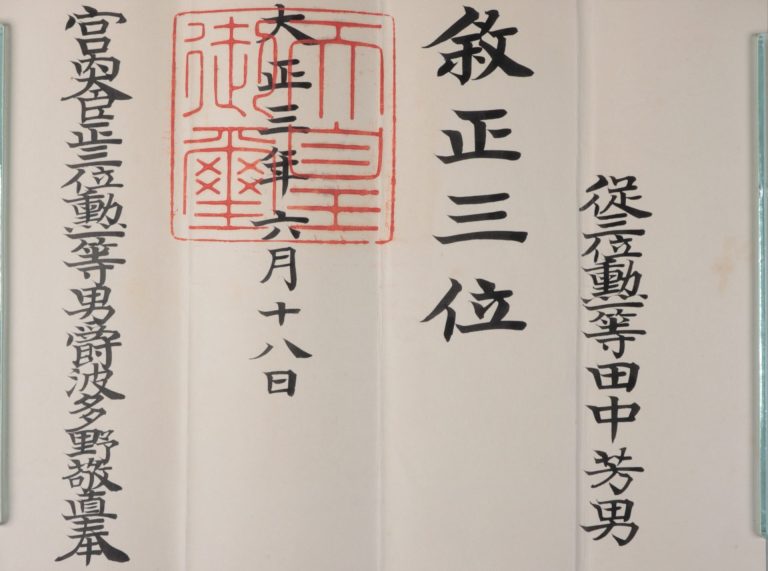 従三位勲一等田中芳男
敘正三位
大正三年六月十八日
天皇御璽
宮内大臣正三位勲一等男爵波多野敬直奉